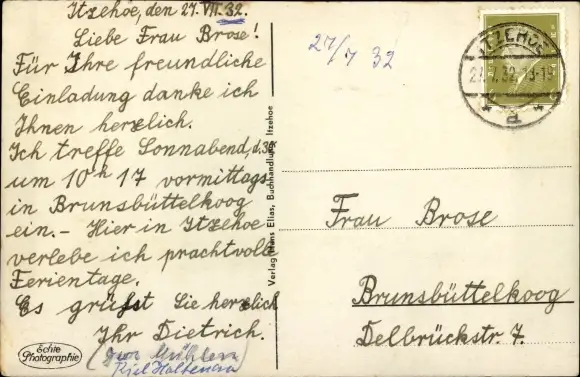 Itzehoe, den 27. VII. 32.
Liebe Frau Brose!
Für Ihre freundliche
Einladung danke ich
Ihnen herzlich.
Ich treffe Sonnabend, d. 30.
um 10 h 17 vormittags
in Brunsbüttelkoog
ein. – Hier in Itzehoe
verlebe ich prachtvolle
Ferientage.
Es grüßt Sie herzlich
Ihr Dietrich.
Mühlen
Kiel
Echte
Photographie
Verlag Hans Elias, Buchhandlung, Itzehoe
27/7 32
ITZEHOE
27.7.32.
Frau Brose
Brunsbüttelkoog
Delbrückstr. 7.